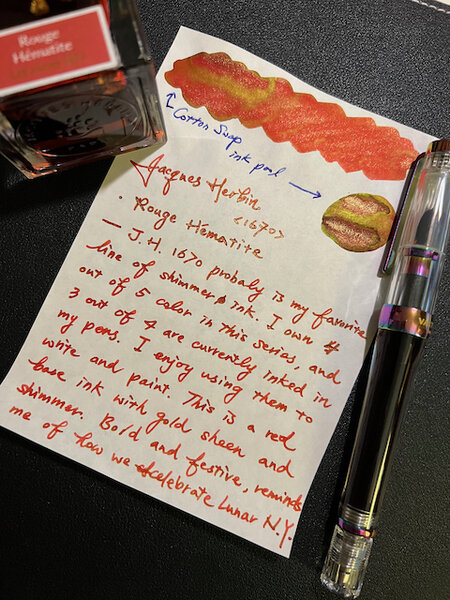 Rouge
Hématite
↑ Cotton Swap
ink pool →
Jacques Herbin
<1670>
· Rouge Hematite
— J.H. 1670 probaly is my favorite
line of shimmer ink. I own 4
out of 5 color in this series, and
3 out of 4 are currently inked in
my pens. I enjoy using them to
write and paint. This is a red
base ink with gold sheen and
shimmer. Bold and festive, reminds
me of how we celebrate Lunar N.Y.